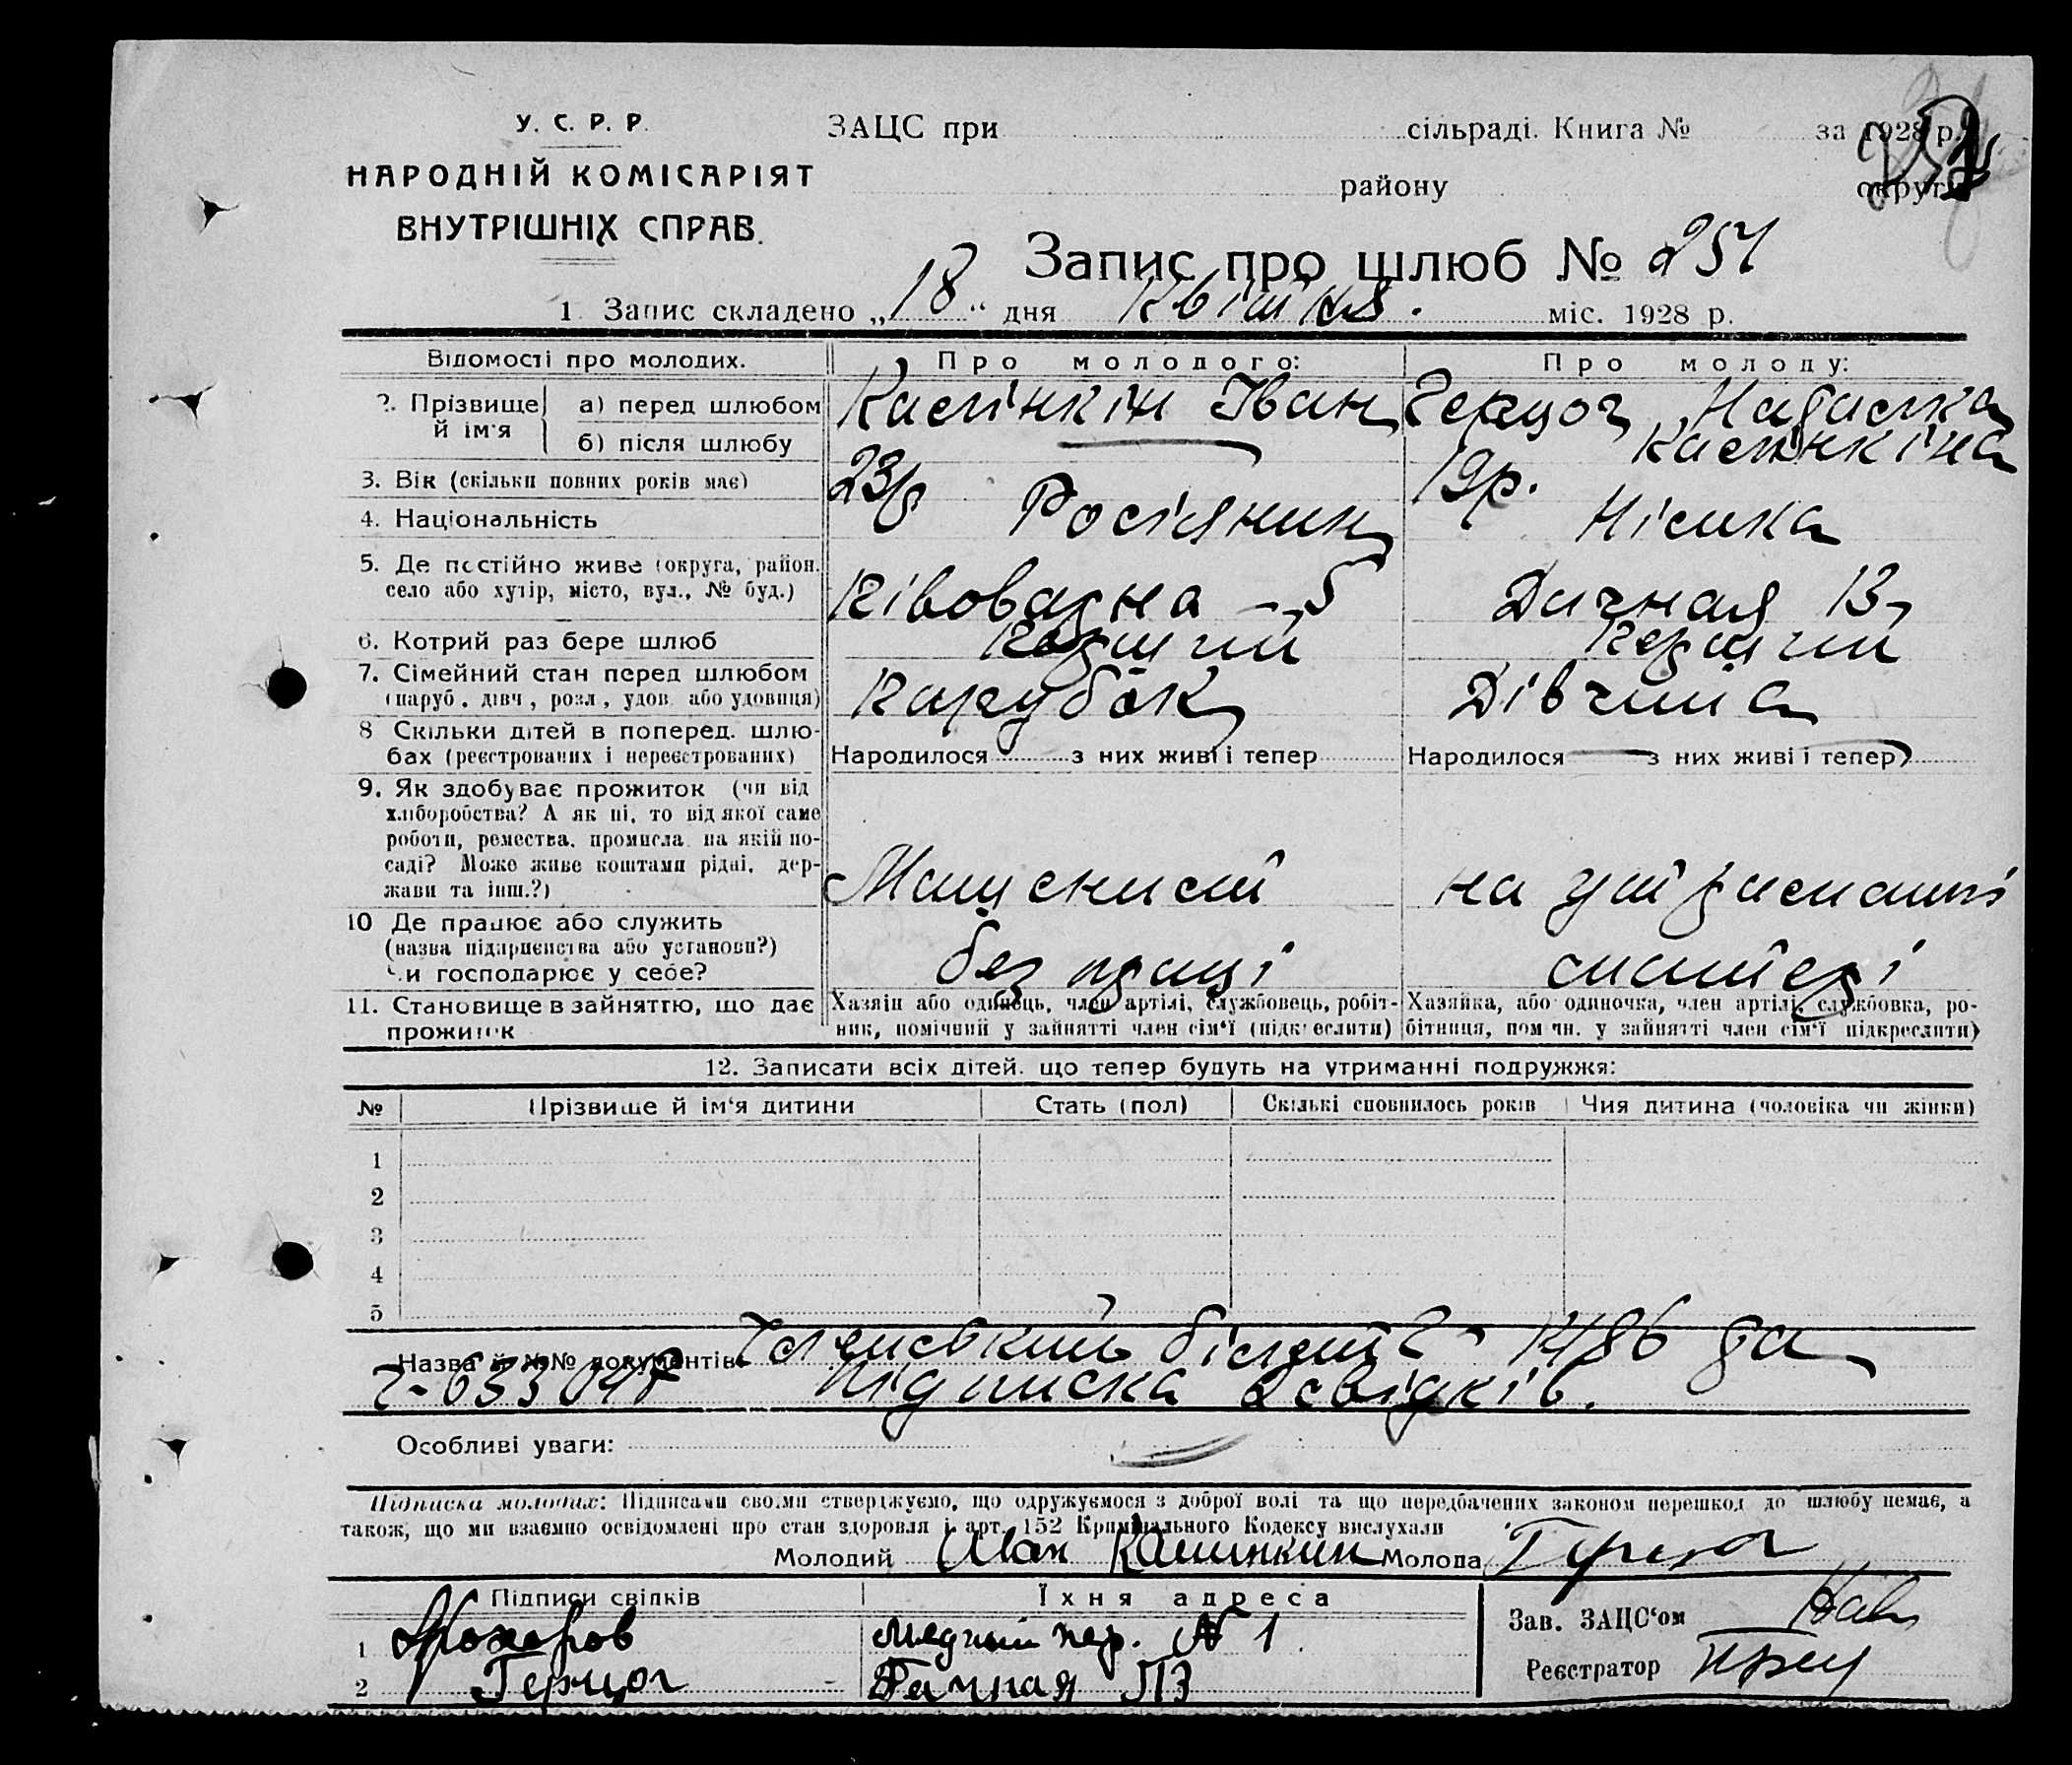 У. С. Р. Р.
НАРОДНІЙ КОМІСАРІЯТ
ВНУТРІШНІХ СПРАВ.
ЗАЦС при сільраді. Книга № за 1928 р.
району округи
Запис про шлюб № 251
1 Запис складено „18“ дня Квітня. міс. 1928 р.
Відомості про молодих.
Про молодого:
Про молоду:
2. Прізвище й ім'я
а) перед шлюбом
Калінкін Іван
Герцог Наталка
б) після шлюбу
Калінкіна
3. Вік (скільки повних років має)
23 р
19 р.
4. Національність
Росіянин
Німка
5. Де постійно живе (округа, район.
село або хутір, місто, вул., № буд.)
Пивоварна – 5
Дачная 13
6. Котрий раз бере шлюб
Перший
Перший
7. Сімейний стан перед шлюбом
(паруб., дівч., розл., удов. або удовиця)
Парубок
Дівчина
8 Скільки дітей в поперед. шлю-
бах (реєстрованих і нереєстрованих)
Народилося з них живі і тепер
Народилося з них живі і тепер
9. Як здобуває прожиток (чи від
хліборобства? А як ні, то від якої саме
роботи, ремества, промисла на якій по-
саді? Може живе коштами рідні, дер-
жави та інш.?)
Машиніст
на утриманні
10 Де працює або служить
(назва підприємства або установи?)
Чи господарює у себе?
без праці
матері
11. Становище в зайняттю, що дає
прожиток
Хазяін або одинець, член артілі, службовець, робіт-
ник, помічний у зайнятті член сім'ї (підкреслити)
Хазяйка, або одиночка, член артілі, службовка, ро-
бітниця, пом чн. у зайнятті член сім'ї підкреслити)
12. Записати всіх дітей. що тепер будуть на утриманні подружжя:
№ Прізвище й ім'я дитини Стать (пол) Скількі сповнилось років Чия дитина (чоловіка чи жінки)
1
2
3
4
5
Назва й №№ документів: білет 1486 да
633 047 Підписка 2 свідків.
Особливі уваги:
Підписка молодих: Підписами своїми стверджуємо, що одружуємося з доброї волі та що передбачених законом перешкод до шлюбу немає, а
також, що ми взаємно освідомлені про стан здоровля і арт. 152 Кримінального Кодексу вислухали
Молодий Иван Калинкин Молода Герцог
Підписи свідків
Їхня адреса
1 Прохоров Медный пер. № 1
2 Герцог Дачная №13
Зав. ЗАЦС'ом
Реєстратор